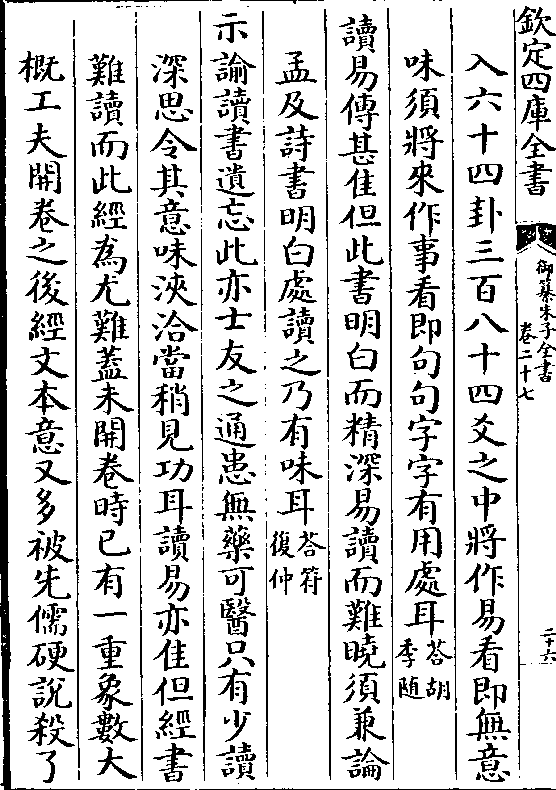 欽定四庫全書
御纂朱子全書
卷二十七
二十六
入六十四卦三百八十四爻之中將作易看即無意
味須將來作事看即句句字字有用處耳
答胡
季随
讀易傳甚佳但此書明白而精深易讀而難曉須兼論
孟及詩書明白處讀之乃有味耳
答符
復仲
示諭讀書遺忘此亦士友之通患無藥可醫只有少讀
深思令其意味浹洽當稍見功耳讀易亦佳但經書
難讀而此經為尤難蓋未開卷時已有一重象數大
概工夫開卷之後經文本意又多被先儒硬說殺了